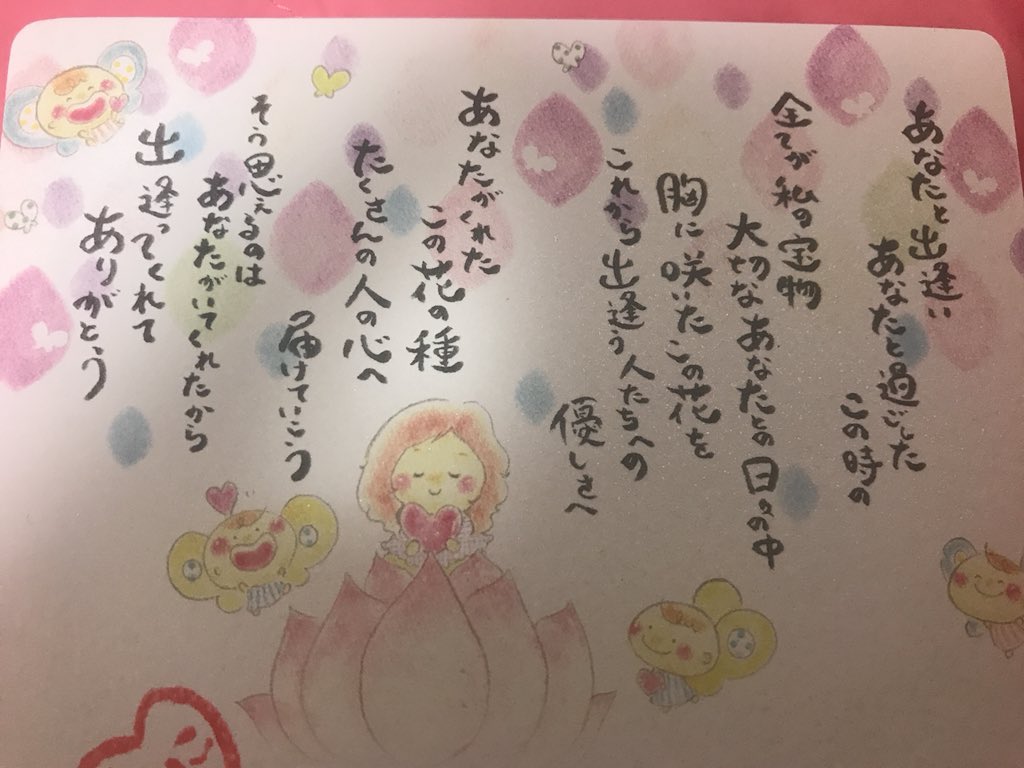 あなたと出逢い
あなたと過ごした
この時の
全てが私の宝物
大切なあなたとの日々の中
胸に咲いたこの花を
これから出逢う人たちへの
優しさへ
あなたがくれた
この花の種
たくさんの人の心へ
届けていこう
そう思えるのは
あなたがいてくれたから
出逢ってくれて
ありがとう